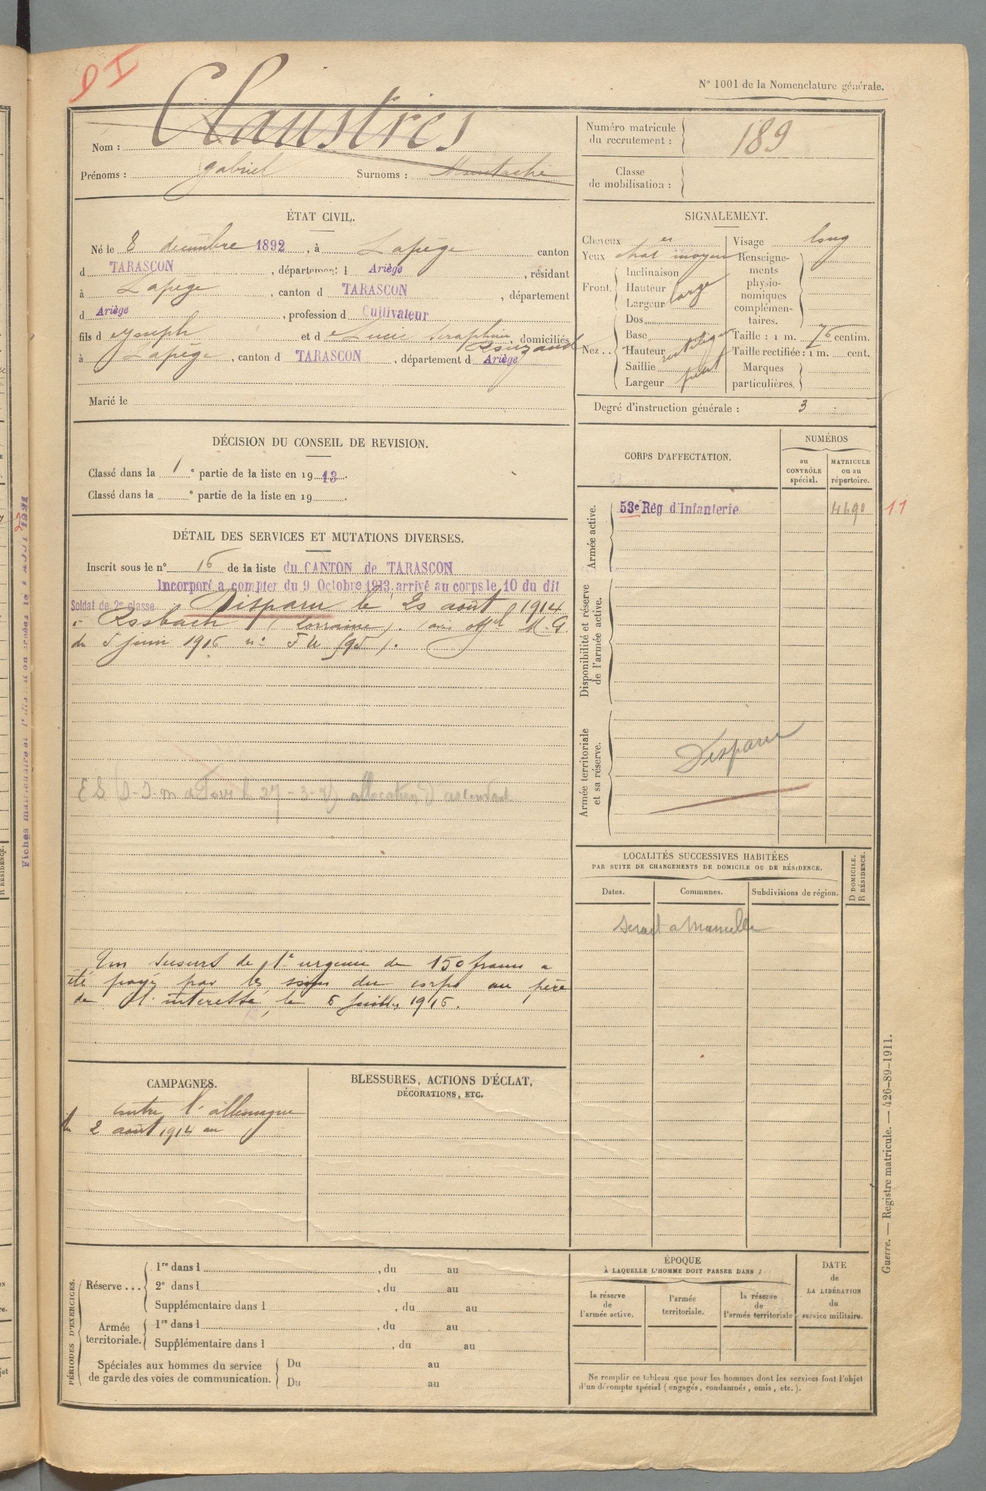 DI
N° 1001 de la Nomenclature générale.
Nom : Claustres
Prénoms : gabriel Surnoms :
Numéro matricule du recrutement : 189
Classe de mobilisation :
ÉTAT CIVIL.
Né le 8 décembre 1892, à Lapège canton
d TARASCON, département d Ariège, résidant
à Lapège, canton d TARASCON, département
d Ariège, profession d Cultivateur
fils d e Joseph et d e Lucie Seraphine domiciliés
à Lapège, canton d TARASCON, département d Ariège
Marié le
SIGNALEMENT.
Cheveux
Yeux chat moyen
Front. Inclinaison
Hauteur
Largeur large
Nez.. Dos
Base
Hauteur rectiligne
Saillie
Largeur petit
Visage long
Renseignements physionomiques complémentaires.
Taille : 1 m. 75 centim.
Taille rectifiée : 1 m. cent.
Marques particulières.
Degré d'instruction générale : 3
DÉCISION DU CONSEIL DE REVISION.
Classé dans la 1e partie de la liste en 1913.
Classé dans la e partie de la liste en 19
CORPS D'AFFECTATION.
NUMÉROS
au CONTRÔLE spécial.
MATRICULE ou au répertoire.
Armée active.
53e Rég d'Infanterie 4690 11
Disponibilité et réserve de l'armée active.
Armée territoriale et sa réserve.
Disparu
DÉTAIL DES SERVICES ET MUTATIONS DIVERSES.
Inscrit sous le n° 16 de la liste du CANTON de TARASCON
Incorporé a compter du 9 Octobre 1913 arrivé au corps le 10 du dit
Soldat de 2e classe Disparu le 20 août 1914
à Rosbach (Lorraine). (avis off M.G.
du 5 juin 1916 n°
allocation d'ascendant
Un secours de 1re urgence de 150 francs a
été payé par les soins du corps au père
de l'interessé, le 6 Juillet 1916.
LOCALITÉS SUCCESSIVES HABITÉES
PAR SUITE DE CHANGEMENTS DE DOMICILE OU DE RÉSIDENCE.
Dates. Communes. Subdivisions de région. D DOMICILE. R RÉSIDENCE.
Serait a Marseille
CAMPAGNES.
contre l'allemagne
2 août 1914 au
BLESSURES, ACTIONS D'ÉCLAT,
DÉCORATIONS, ETC.
PÉRIODES D'EXERCICES.
Réserve... 1re dans l, du au
2e dans l, du au
Supplémentaire dans l, du au
Armée territoriale. 1re dans l, du au
Supplémentaire dans l, du au
Spéciales aux hommes du service de garde des voies de communication. Du au
Du au
ÉPOQUE
À LAQUELLE L'HOMME DOIT PASSER DANS :
la réserve de l'armée active.
l'armée territoriale.
la réserve de l'armée territoriale
DATE de LA LIBÉRATION du service militaire.
Ne remplir ce tableau que pour les hommes dont les services font l'objet
d'un décompte spécial (engagés, condamnés, omis, etc.).
Guerre. — Registre matricule. — 426-89-1911.